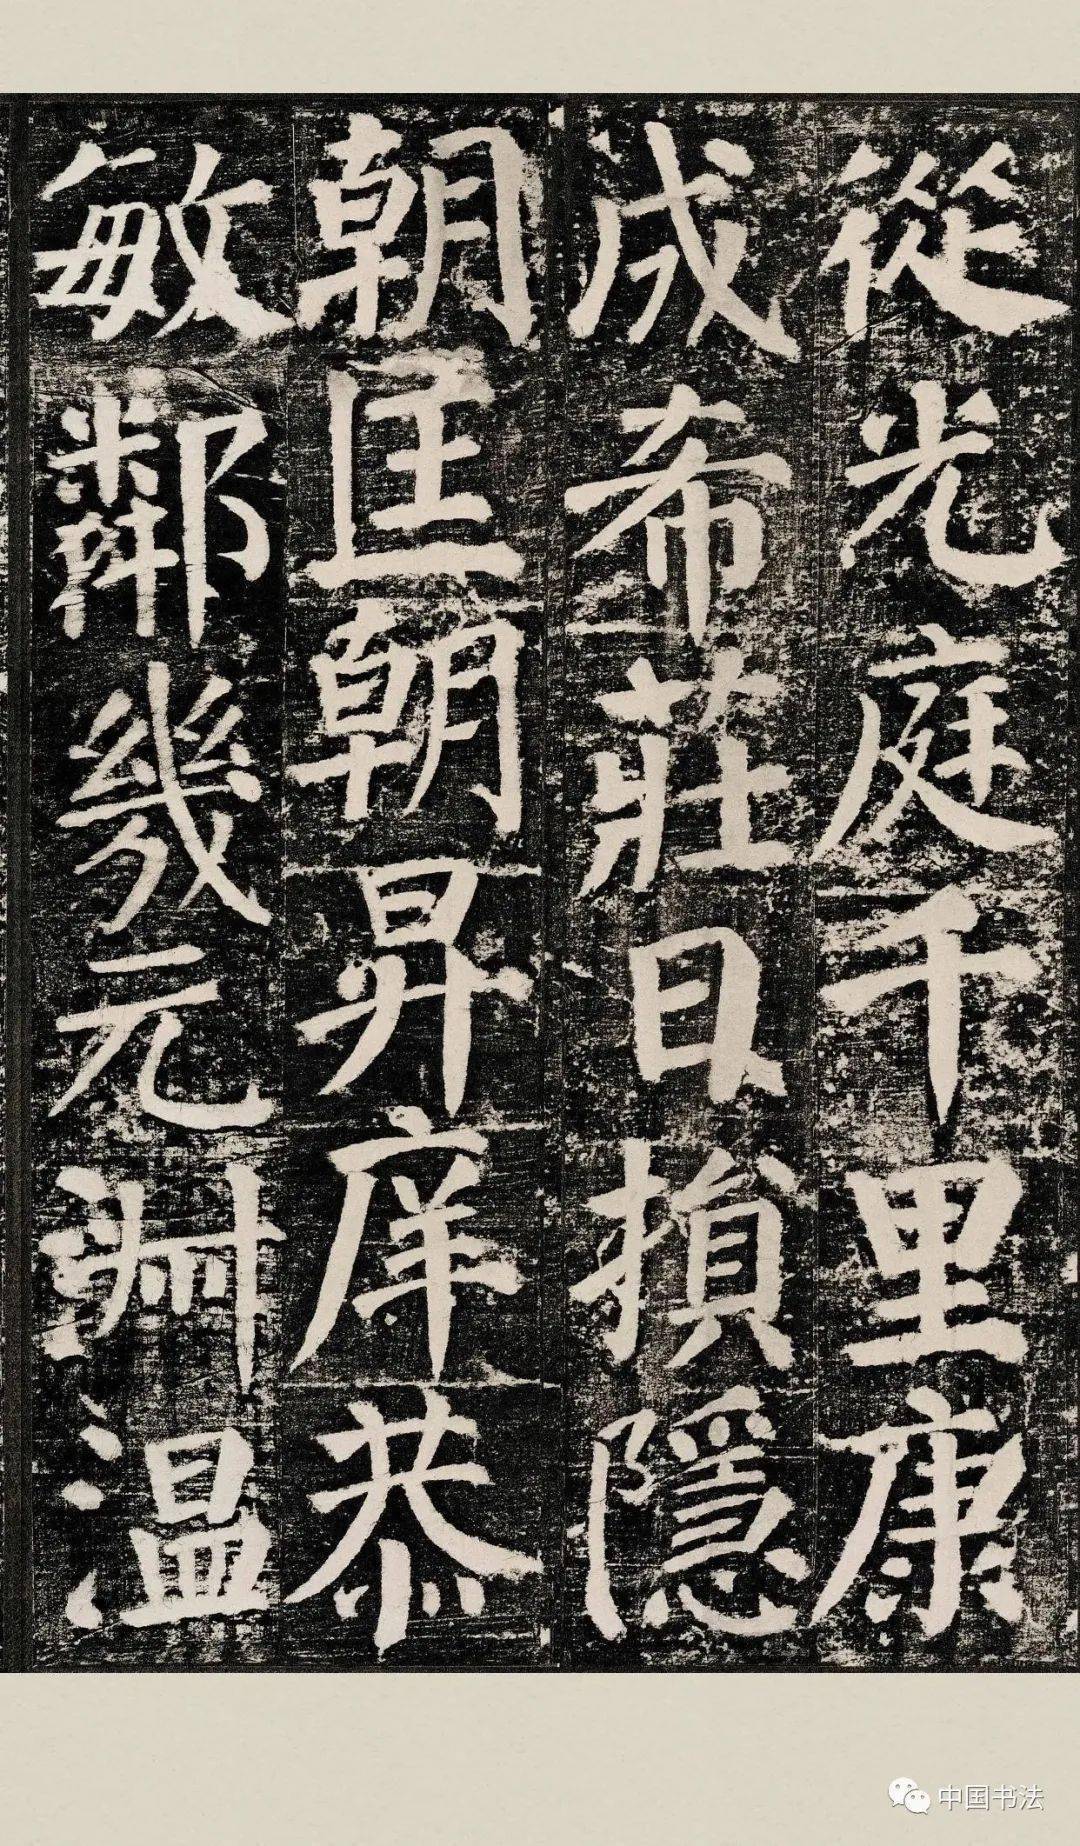 從光庭千里康
成希莊日損隱
朝匡朝昇庠恭
敏鄰幾元淵溫
中国书法